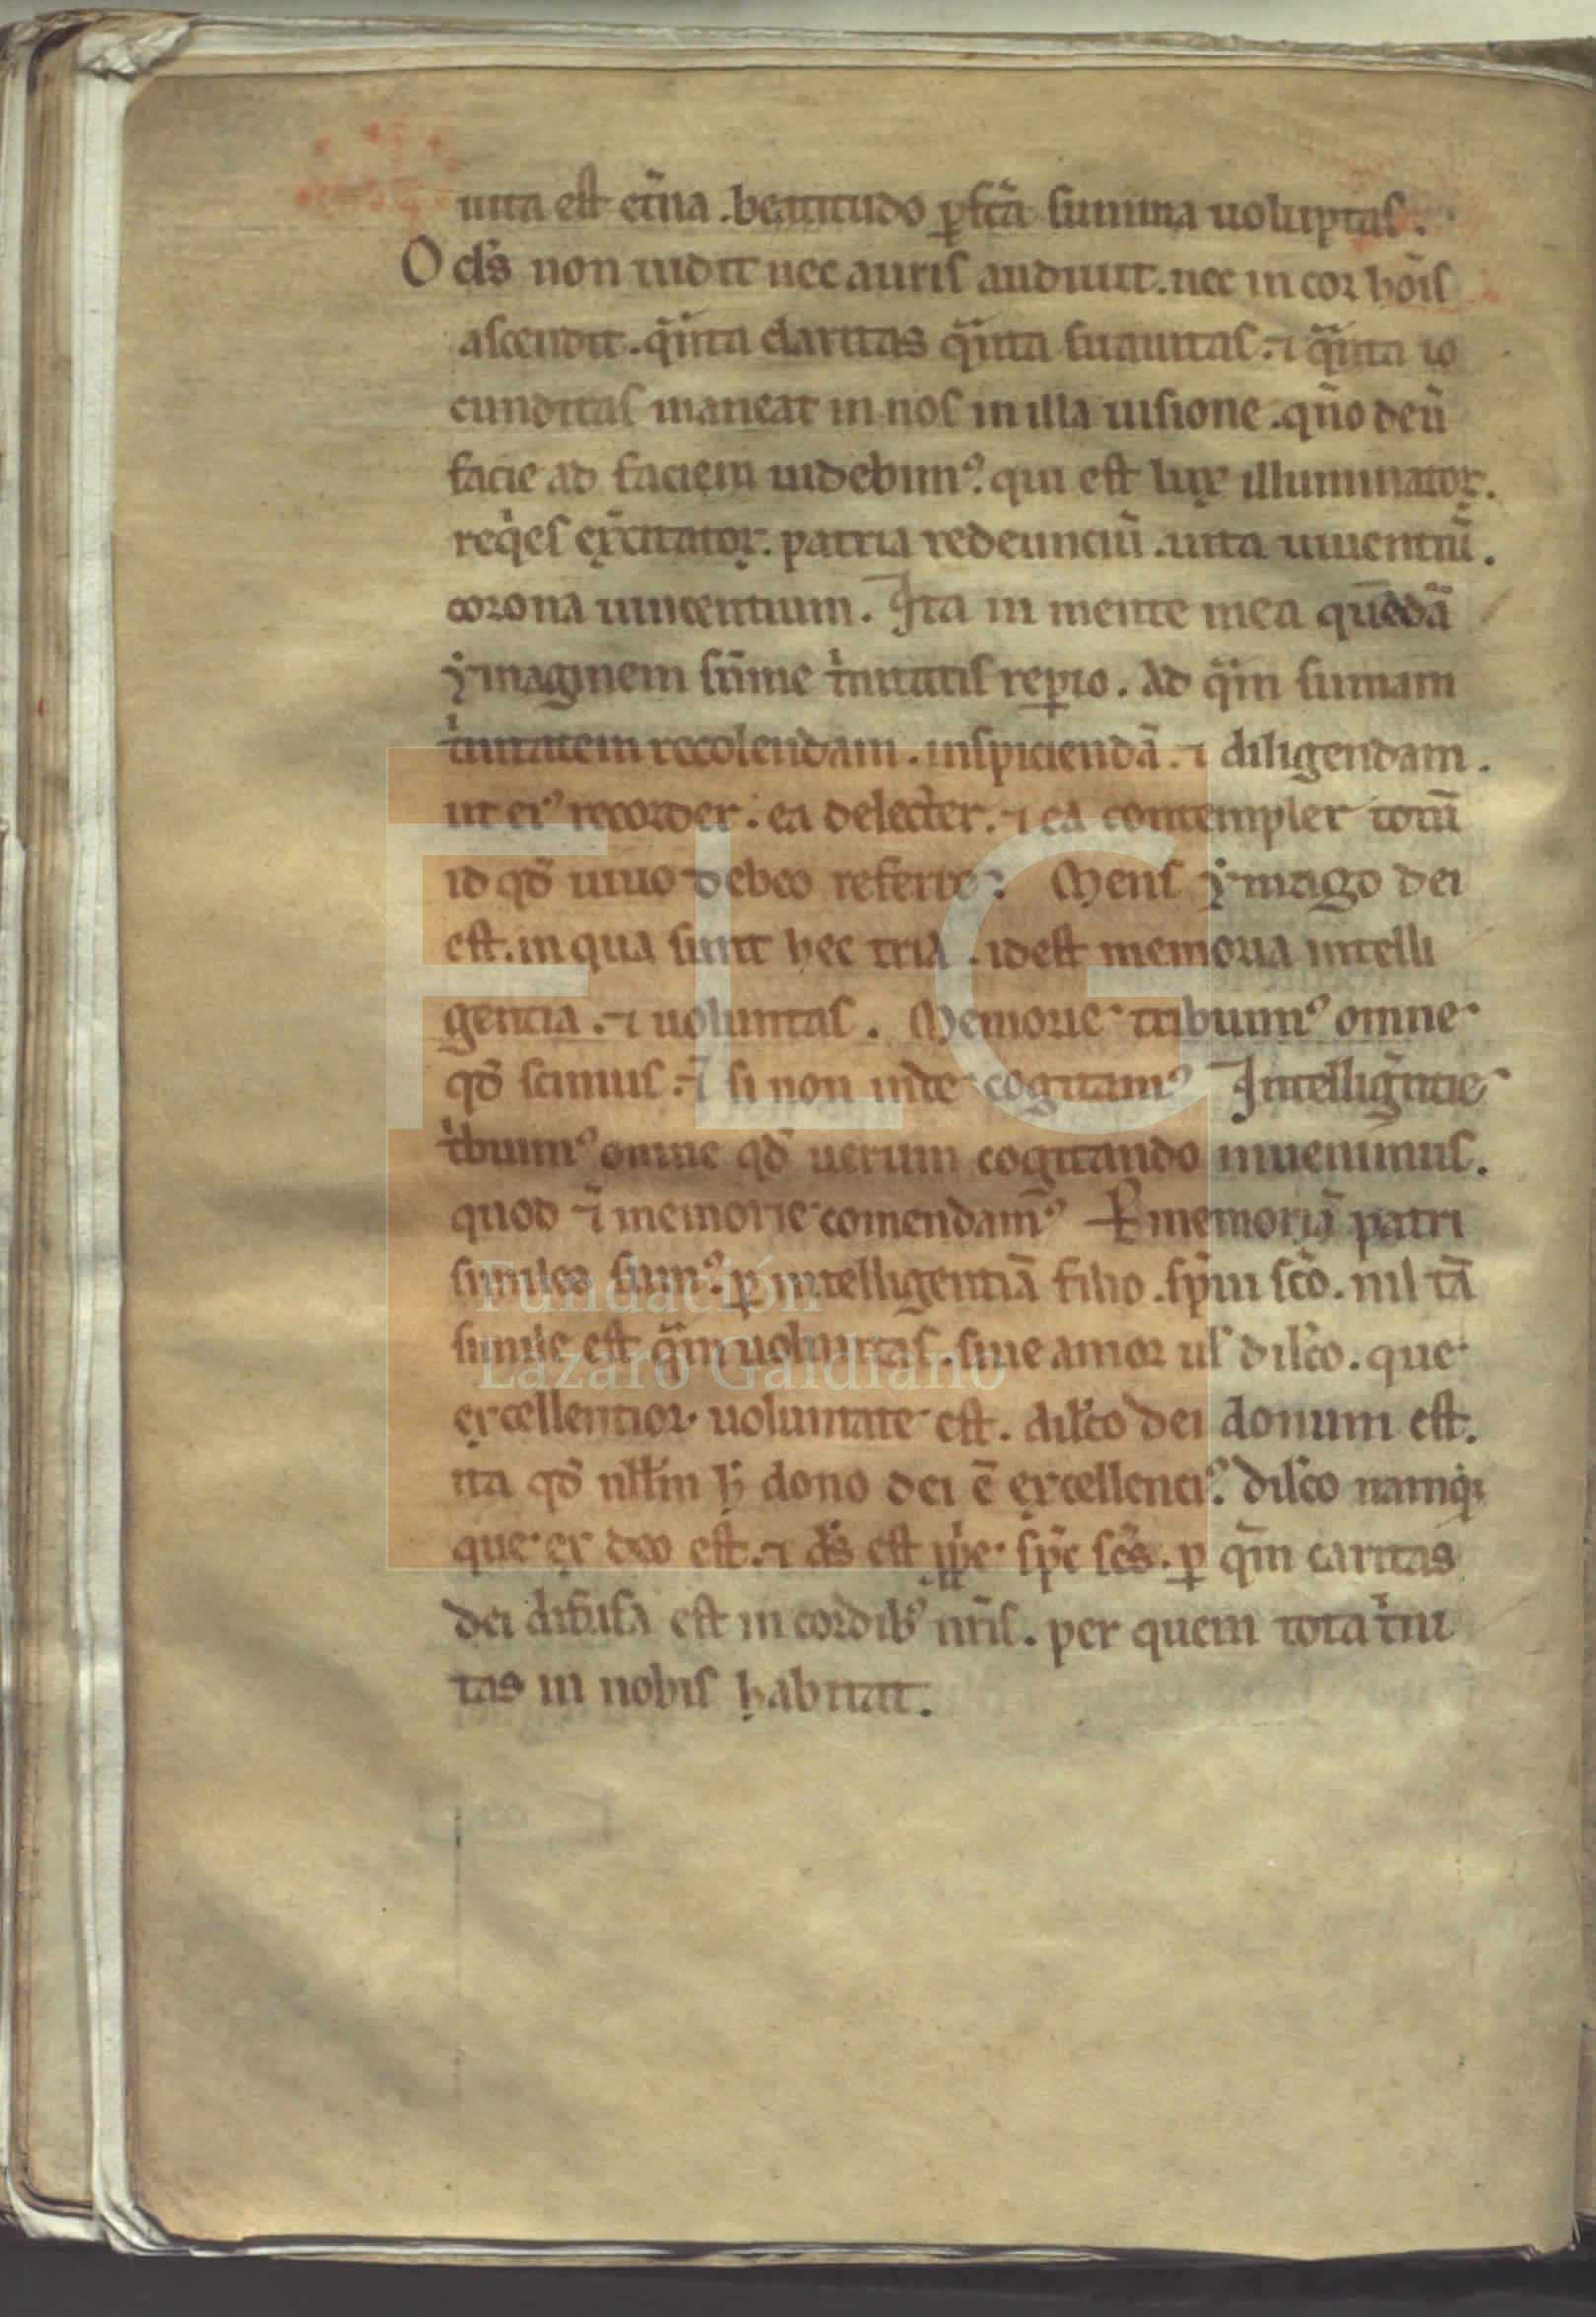 uita est et̃na. beatitudo ꝑfc̃a summa uoluptas.
Oc̃ls non uidit nec auris audiuit. nec in cor hoĩs
ascendit. qᵃnta claritas qᵃnta suauitas. ⁊ qᵃnta io
cunditas maneat in nos in illa uisione. qño deũ
facie ad faciem uidebimꝰ. qui est lux illuminatoꝝ.
reqⁱes exc̃itatoꝝ. patria redeunciũ. uita uiuentiũ.
corona uincentium. Ita in mente mea quẽdã
ẏmaginem sũme tⁱnitatis reꝑio. Ad qᵃm sumam
tⁱnitatem recolendam. inspiciendã. ⁊ diligendam.
ut eiꝰ recorder. ea delect̃er. ⁊ ea contempler totũ
id qđ uiuo debeo referre. Mens ẏmago dei
est. in qua sunt hec tria. idest memoria intelli
gencia. ⁊ uoluntas. Memorie tribuimꝰ omne
qđ scimus. ⁊̃ si non inde cogitamꝰ Intellig̃ntie
tⁱbuimꝰ omne qđ uerum cogitando inuenimus.
quod ⁊̃ memorie comendamꝰ Ꝑ memoriã patri
similes sumꝰ. ꝑ intelligentiã filio. sp̃ui sc̃o. nil tã
simile est qᵃm uoluntas. siue amor ul̃ dil̃co. que
excellentior uoluntate est. dil̃co dei donum est.
ita qđ nll̃m ħ dono dei ẽ excellenciꝰ. dil̃co namqꝫ
que ex deo est. ⁊ ds̃ est ꝓpⁱe sp̃c sc̃s. ꝑ qᵃm caritas
dei difusa est in cordibꝰ nr̃is. per quem tota tⁱni
tas in nobis habitat.
FLG
Fundación
Lázaro Galdiano